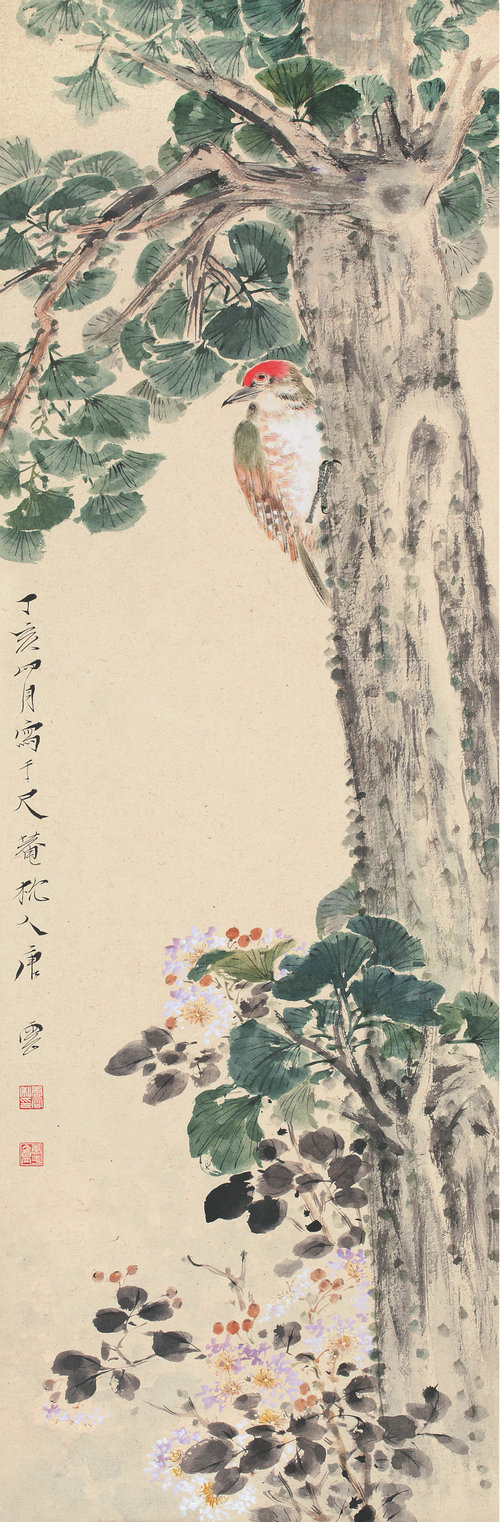 丁亥四月寫于尺菴杭人唐雲